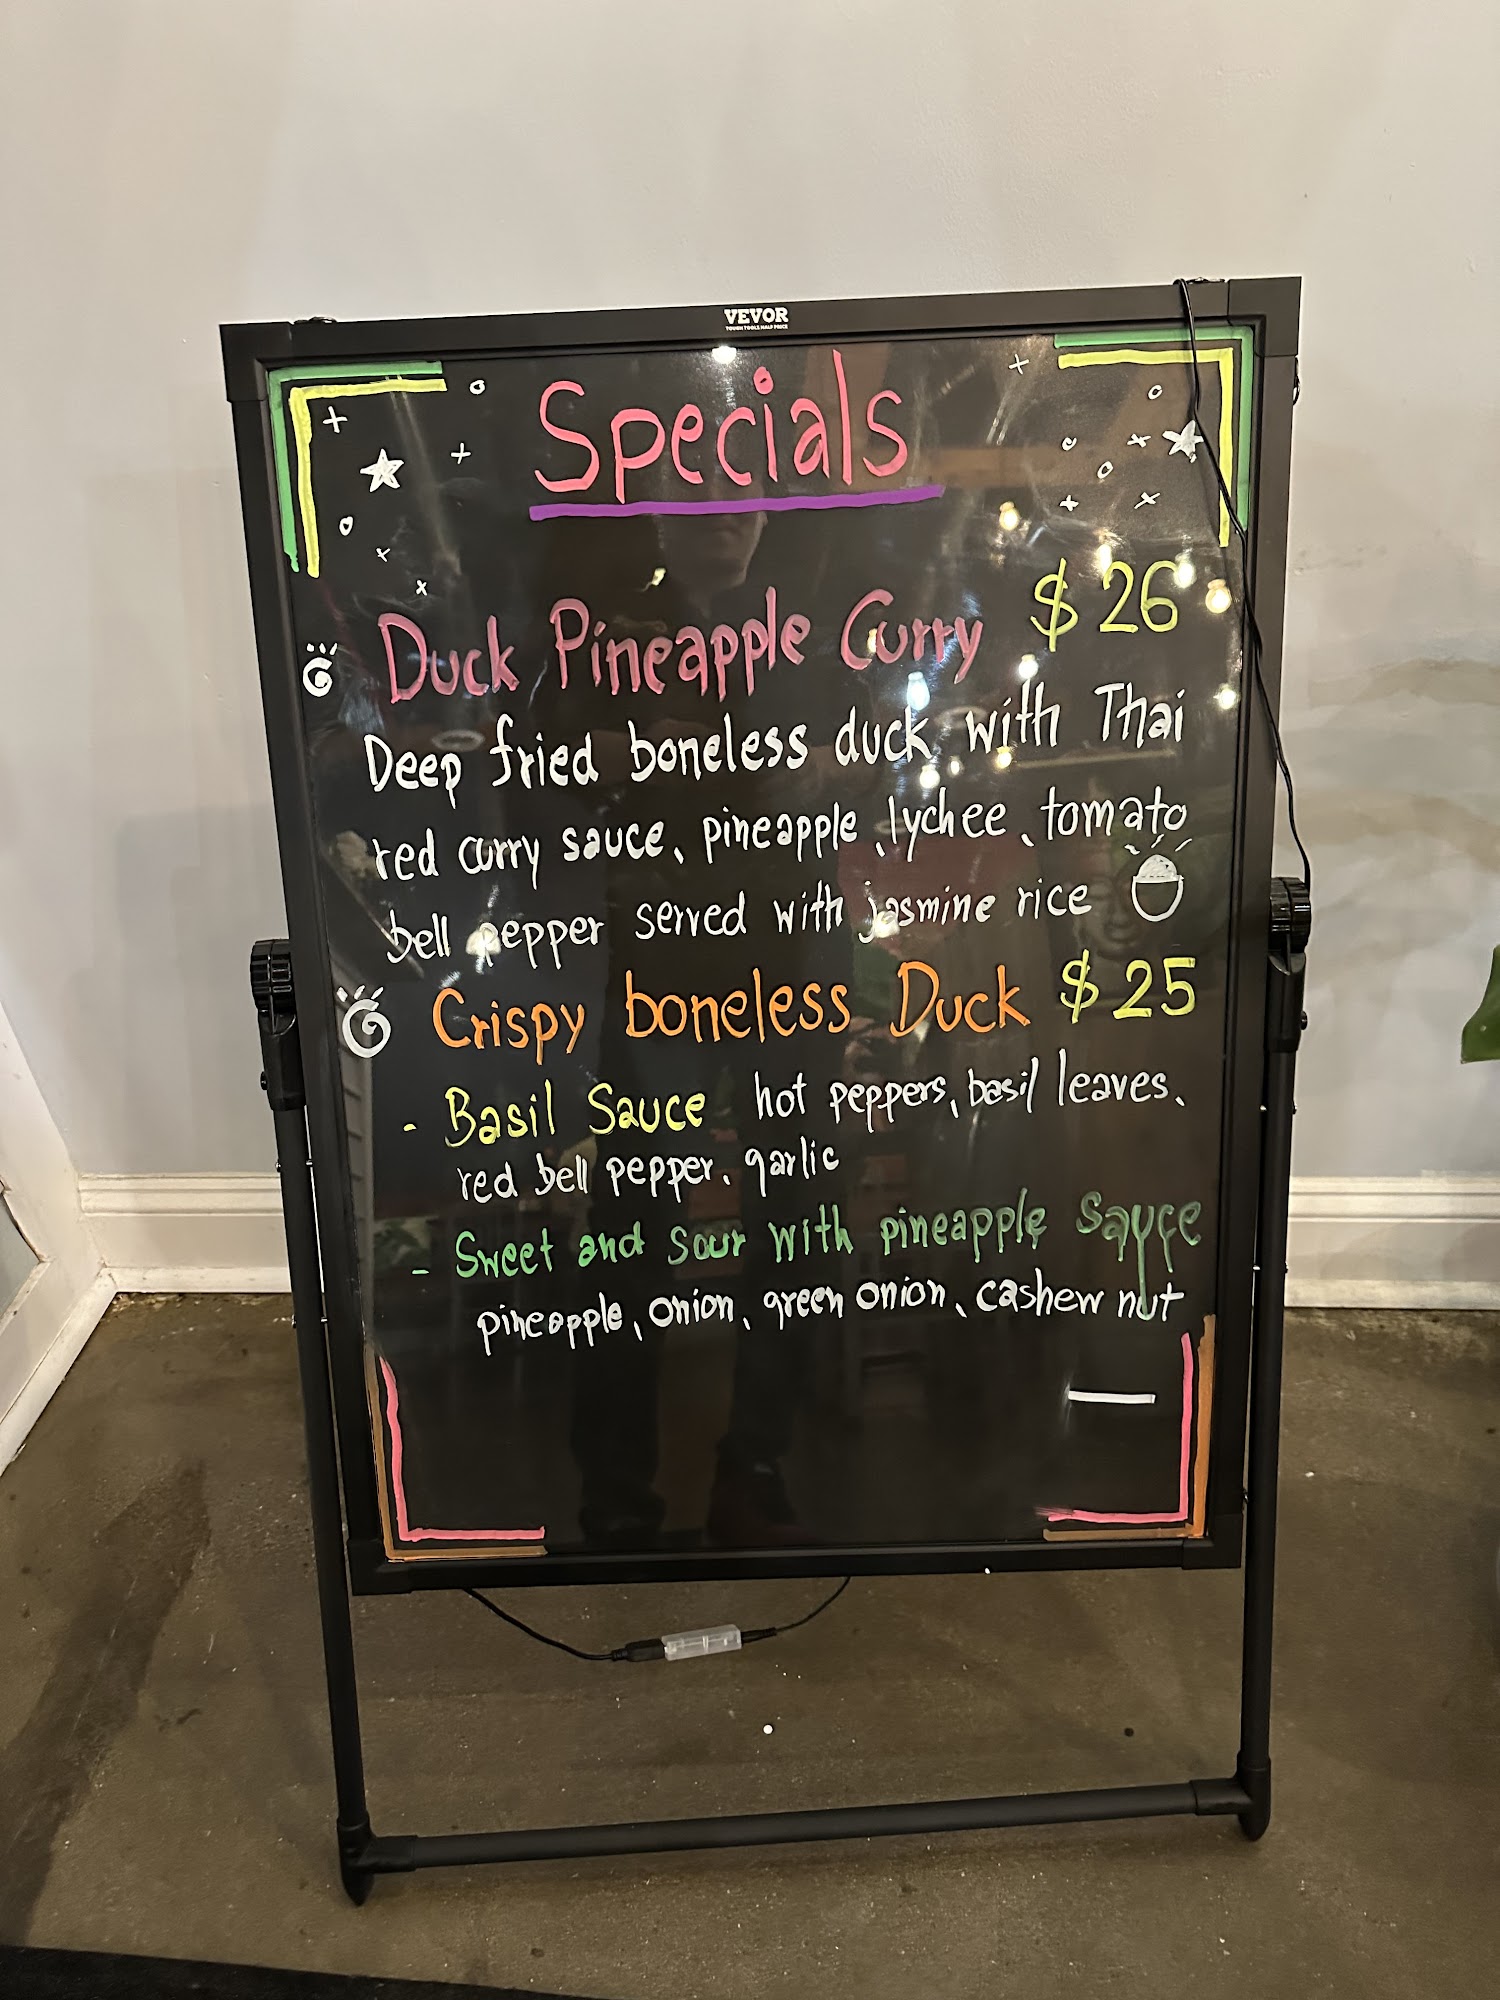 VEVOR
TOUGH TOOLS HALF PRICE
Specials
Duck Pineapple Curry $26
Deep fried boneless duck with Thai
red curry sauce, pineapple, lychee, tomato
bell pepper served with jasmine rice
Crispy boneless Duck $25
- Basil Sauce hot peppers, basil leaves,
red bell pepper, garlic
- Sweet and Sour with pineapple Sauce
pineapple, onion, green onion, cashew nut